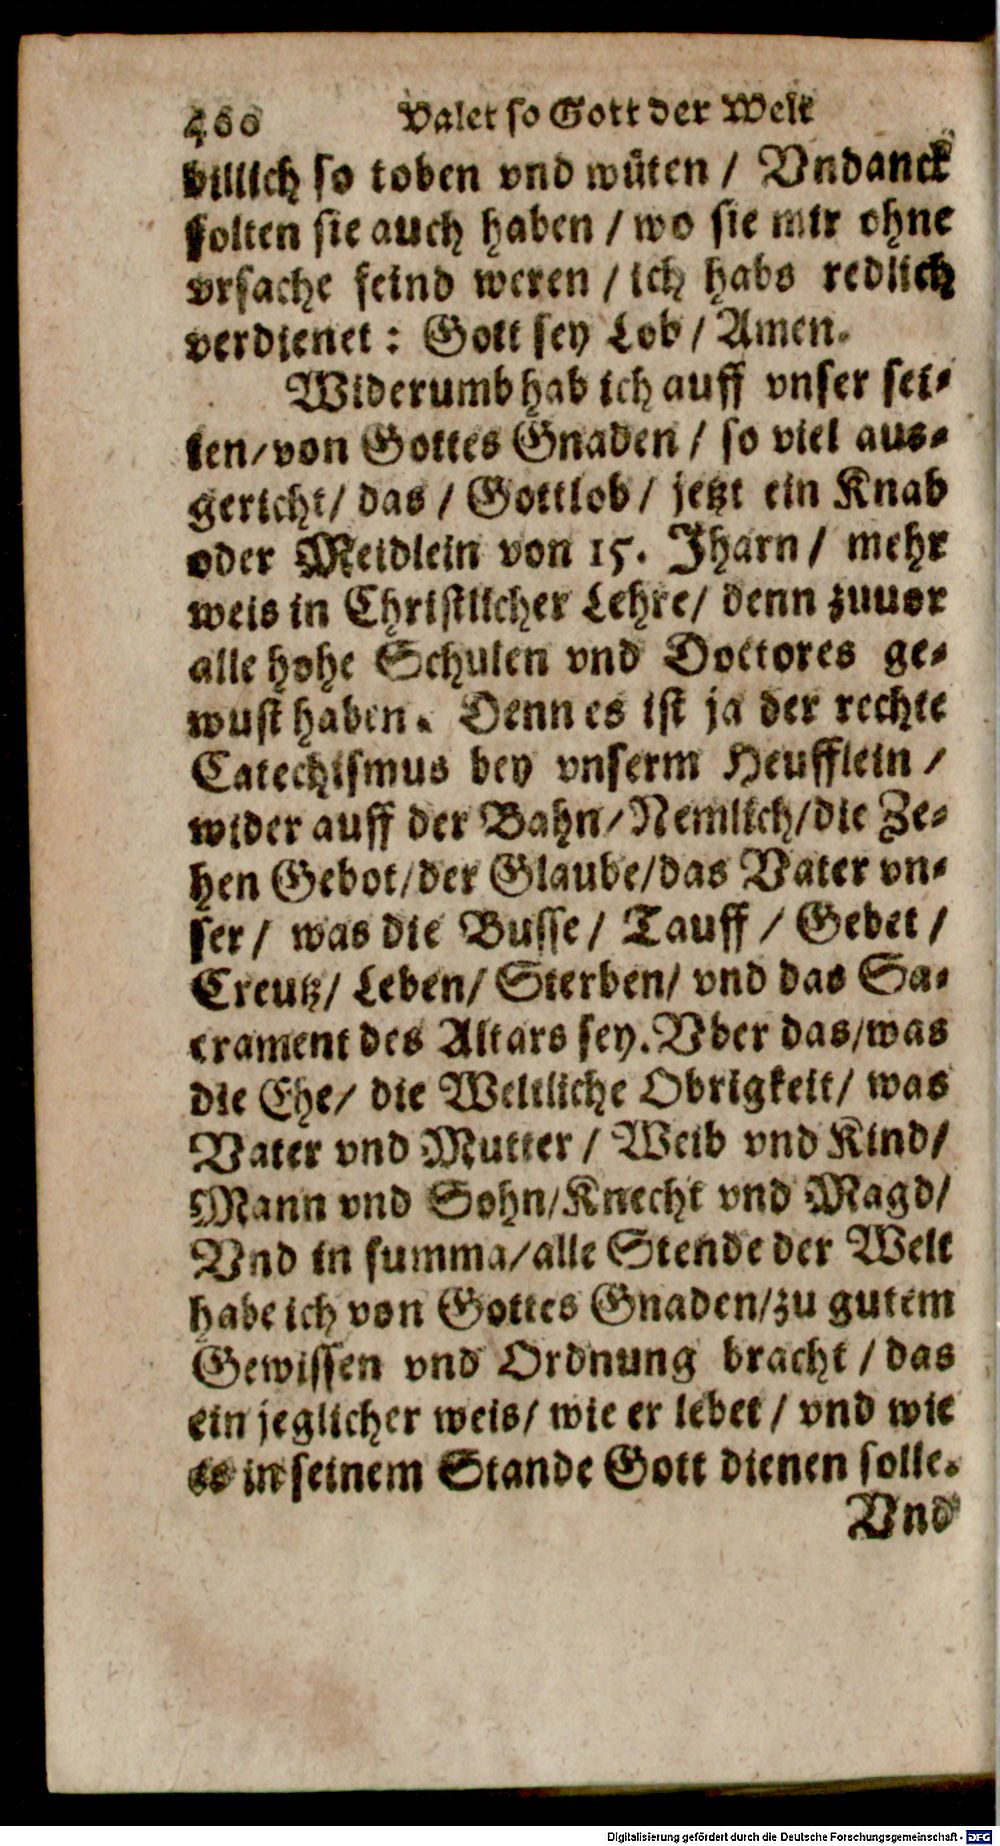 460 Valet so Gott der Welt
billich so toben vnd wüten / Vndanck
solten sie auch haben / wo sie mir ohne
vrsache feind weren / ich habs redlich
verdienet : Gott sey Lob / Amen.
Widerumb hab ich auff vnser sei-
ten / von Gottes Gnaden / so viel aus-
gericht / das / Gottlob / jetzt ein Knab
oder Meidlein von 15. Jharn / mehr
weis in Christlicher Lehre / denn zuuor
alle hohe Schulen vnd Doctores ge-
wust haben. Denn es ist ja der rechte
Catechismus bey vnserm Heufflein /
wider auff der Bahn / Nemlich / die Ze-
hen Gebot / der Glaube / das Vater vn-
ser / was die Busse / Tauff / Gebet /
Creutz / Leben / Sterben / vnd das Sa-
crament des Altars sey. Vber das / was
die Ehe / die Weltliche Obrigkeit / was
Vater vnd Mutter / Weib vnd Kind /
Mann vnd Sohn / Knecht vnd Magd /
Vnd in summa / alle Stende der Welt
habe ich von Gottes Gnaden / zu gutem
Gewissen vnd Ordnung bracht / das
ein jeglicher weis / wie er lebet / vnd wie
in seinem Stande Gott dienen solle.
Vnd
Digitalisierung gefördert durch die Deutsche Forschungsgemeinschaft - DFG